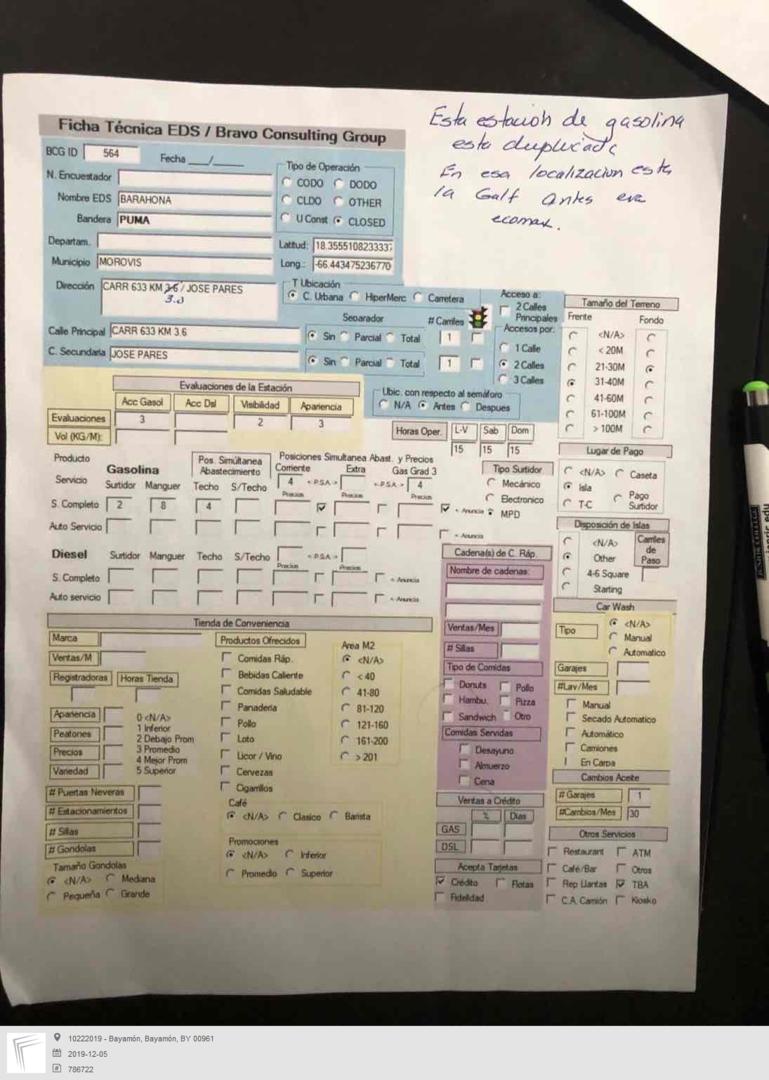 Esta estación de gasolina
esta duplicada
En esa localizacion esta
la Galf antes era
ecomax.
Ficha Técnica EDS / Bravo Consulting Group
BCG ID 564 Fecha ___/____
N. Encuestador
Nombre EDS BARAHONA
Bandera PUMA
Tipo de Operación
CODO DODO
CLDO OTHER
U Const CLOSED
Departam.
Municipio MOROVIS
Latitud: 18.3555108233333
Long.: -66.443475236770
Dirección CARR 633 KM 3.6 / JOSE PARES
3.0
T Ubicación
C. Urbana HiperMerc Carretera
Separador # Carriles
Calle Principal CARR 633 KM 3.6 Sin Parcial Total 1
C. Secundaria JOSE PARES Sin Parcial Total 1
Acceso a:
2 Calles
Principales
Accesos por:
1 Calle
2 Calles
3 Calles
Tamaño del Terreno
Frente Fondo
<N/A>
< 20M
21-30M
31-40M
41-60M
61-100M
> 100M
Evaluaciones de la Estación
Acc Gasol Acc Dsl Visibilidad Apariencia
Evaluaciones 3 2 3
Vol (KG/M):
Ubic. con respecto al semáforo
N/A Antes Despues
Horas Oper. L-V Sab Dom
15 15 15
Lugar de Pago
<N/A> Caseta
Isla
T-C Pago
Surtidor
Producto
Servicio
Gasolina
Surtidor Manguer
Pos. Simúltanea
Abastecimiento
Techo S/Techo
Posiciones Simultanea Abast. y Precios
Corriente Extra Gas Grad 3
4 <-P.S.A-> <-P.S.A-> 4
Precios Precios Precios
S. Completo 2 8 4 <- Anuncia
Auto Servicio <- Anuncia
Tipo Surtidor
Mecánico
Electronico
MPD
Disposición de Islas
<N/A>
Other
4-6 Square
Starting
Carriles
de
Paso
Diesel Surtidor Manguer Techo S/Techo <-P.S.A->
Precios Precios
S. Completo <- Anuncia
Auto servicio <- Anuncia
Cadena(s) de C. Ráp.
Nombre de cadenas:
Ventas/Mes
# Sillas
Tipo de Comidas
Donuts Pollo
Hambu. Pizza
Sandwich Otro
Comidas Servidas
Desayuno
Almuerzo
Cena
Car Wash
Tipo
<N/A>
Manual
Automatico
Garajes
#Lav/Mes
Manual
Secado Automatico
Automático
Camiones
En Carpa
Tienda de Conveniencia
Marca
Ventas/M
Registradoras Horas Tienda
Apariencia
Peatones
Precios
Variedad
0 <N/A>
1 Inferior
2 Debajo Prom
3 Promedio
4 Mejor Prom
5 Superior
# Puertas Neveras
# Estacionamientos
# Sillas
# Gondolas
Tamaño Gondolas
<N/A> Mediana
Pequeña Grande
Productos Ofrecidos
Comidas Ráp.
Bebidas Caliente
Comidas Saludable
Panaderia
Pollo
Loto
Licor / Vino
Cervezas
Cigarrillos
Area M2
<N/A>
< 40
41-80
81-120
121-160
161-200
> 201
Café
<N/A> Clasico Barista
Promociones
<N/A> Inferior
Promedio Superior
Ventas a Crédito
% Dias
GAS
DSL
Acepta Tarjetas
Crédito Flotas
Fidelidad
Cambios Aceite
# Garajes 1
#Cambios/Mes 30
Otros Servicios
Restaurant ATM
Café/Bar Otros
Rep Llantas TBA
C.A. Camión Kiosko
10222019 - Bayamón, Bayamón, BY 00961
2019-12-05
786722